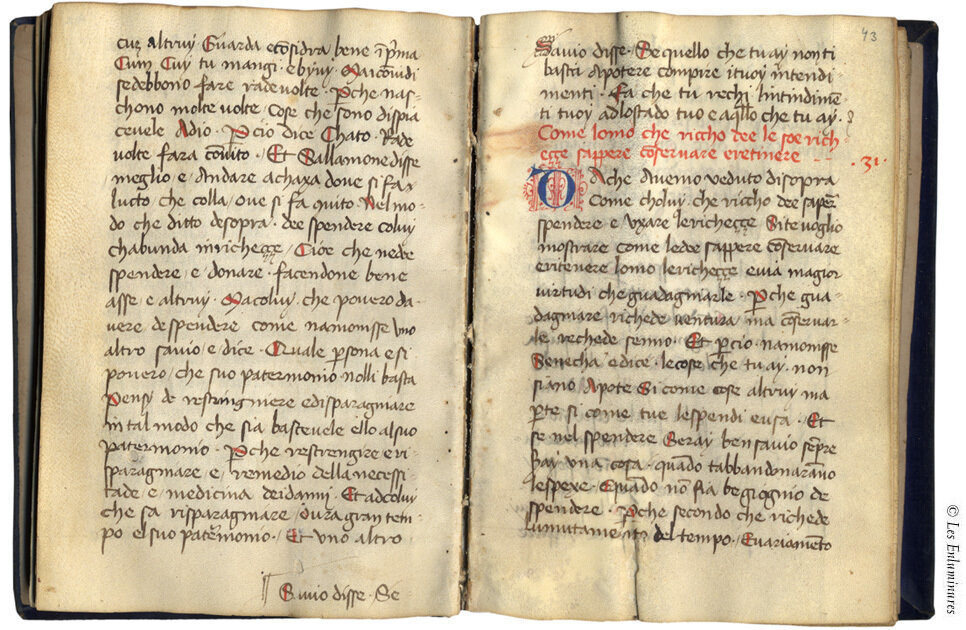 cuz altruy Guarda ecosidra bene ĩp̃ma
Cum Cuy tu mangi · e byuy · Ma icouidi
se debbono fare rade volte · P̱che nas-
chono molte volte · Cose che sono dispia
ceuele Adio · P̱cio dice Chato · Rade
volte fara couito · Et Sallamone disse
meglio e · Andare achaxa doue si fa
lucto che colla / oue si fa quito Nel mo-
do che ditto desopra · dee spendere coluy
chabunda in richegçe / Cioe che ne dee
spendere / e donare · facendone bene
asse / e altruy · Ma coluy · che pouero da-
uere de spendere come namonisse uno
altro sauio / e dice · Quale p̱sona e si
pouero / che suo patermonio nolli basta
Pensy de restringnere e disparagniare
in tal modo che sia basteuele ello al suo
patermonio · P̱che restrengire e ri
sparagmare / e / remedio della necessi
tade / e / medicina dei danny · Et ad coluy
che sa risparagmare / dura gran tem-
po el suo pat̃monio · Et uno altro
Sauio disse · Se
43
Sauio disse · Se quello che tu ay non ti
basti Apotere compire i tuoy intendi
menti · Fa che tu rechi lintindimẽ
ti tuoy ad lo stado tuo e a q̃llo che tu ay ·
Come lomo che riccho dee le soe rich
egçe sappere cõseruare e retinere
· 31 ·
DA che Auemo veduto disopra
Come choluy · che riccho dee sap̱er
spendere e vxare le richegçe Si te voglio
mostrare come le dee sappere cõseruare
e ritenere lomo le richegçe e uia magior
virtudi che guadagmarle · P̱che gua-
dagmare richede uentura / ma cõseruar-
le · rechede senno · Et p̱cio · namonisse
Senecha e dice · le cose che tu ay · non
siano Apote Si come cose altruy ma
p̱te si come tue le spendi e usa · Et
se nel spendere Seray ben sauio sẽpre
hay una cosa · quãdo tabbandonarãno
le spexe · Equãdo nõ fia begiognio de
spendere · P̱che secondo che richede
lu mutamento del tempo · E uariamẽto
© Les Enluminures